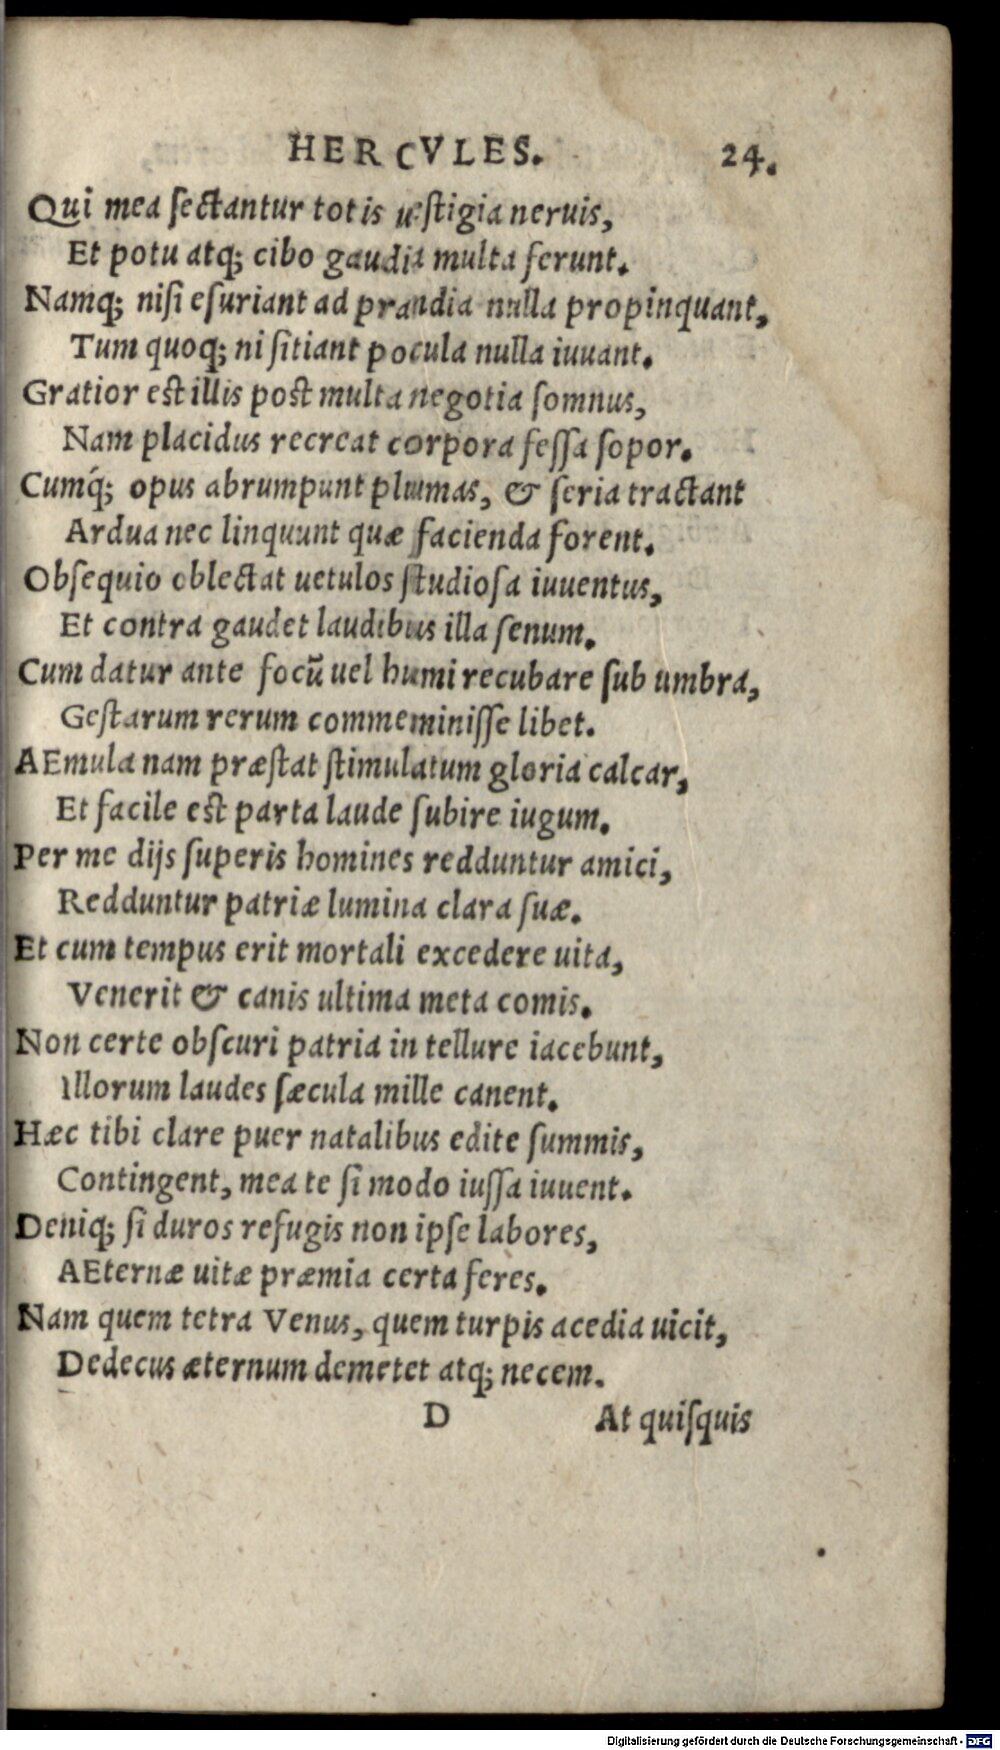 HERCVLES. 24.
Qui mea ſectantur totis ueſtigia neruis,
Et potu atq; cibo gaudia multa ferunt.
Namq; niſi eſuriant ad prandia nulla propinquant,
Tum quoq; ni ſitiant pocula nulla iuuant.
Gratior eſt illis poſt multa negotia ſomnus,
Nam placidus recreat corpora feſſa ſopor.
Cumq́; opus abrumpunt plumas, & ſeria tractant
Ardua nec linquunt quæ facienda forent.
Obſequio oblectat uetulos ſtudioſa iuuentus,
Et contra gaudet laudibus illa ſenum.
Cum datur ante focũ uel humi recubare ſub umbra,
Geſtarum rerum commeminiſſe libet.
AEmula nam præſtat ſtimulatum gloria calcar,
Et facile eſt parta laude ſubire iugum.
Per me dijs ſuperis homines redduntur amici,
Redduntur patriæ lumina clara ſuæ.
Et cum tempus erit mortali excedere uita,
Venerit & canis ultima meta comis.
Non certe obſcuri patria in tellure iacebunt,
Illorum laudes ſæcula mille canent.
Hæc tibi clare puer natalibus edite ſummis,
Contingent, mea te ſi modo iuſſa iuuent.
Deniq; ſi duros refugis non ipſe labores,
AEternæ uitæ præmia certa feres.
Nam quem tetra Venus, quem turpis acedia uicit,
Dedecus æternum demetet atq; necem.
D At quiſquis
Digitalisierung gefördert durch die Deutsche Forschungsgemeinschaft - DFG